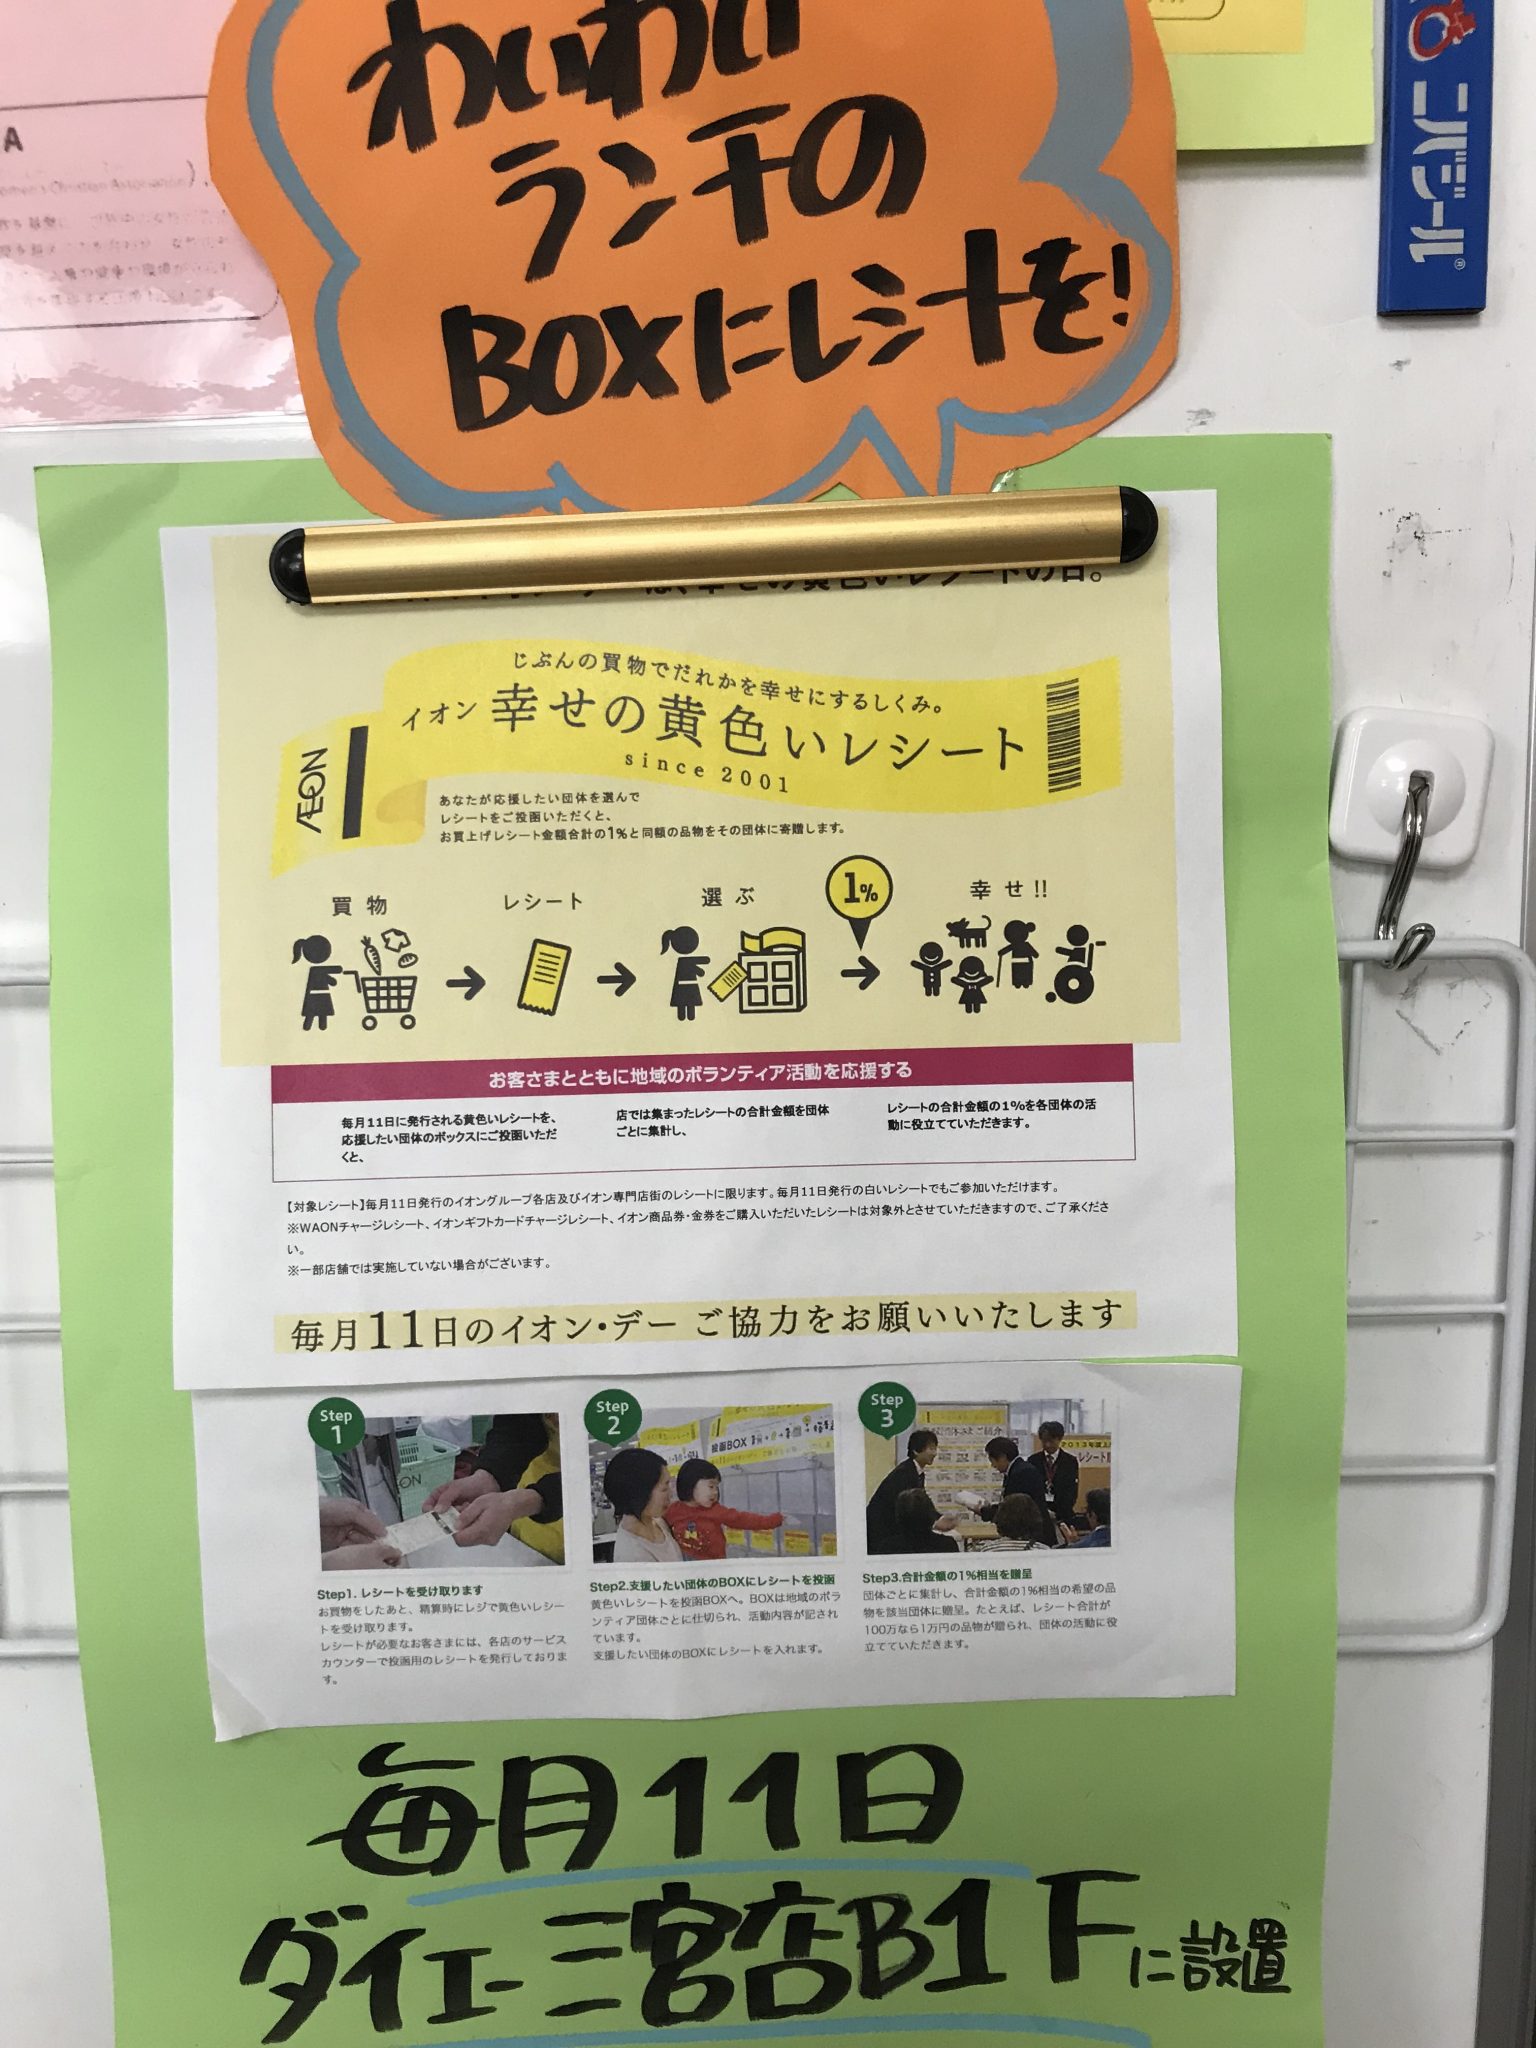 わいわい
ランチの
BOXにレシートを!
ニバジール®
A
omen's Christian Association)
は、幸せの黄色いレシートの日。
じぶんの買物でだれかを幸せにするしくみ。
イオン 幸せの黄色いレシート
since 2001
ÆON
あなたが応援したい団体を選んで
レシートをご投函いただくと、
お買上げレシート金額合計の1%と同額の品物をその団体に寄贈します。
買物
レシート
選ぶ
1%
幸せ!!
お客さまとともに地域のボランティア活動を応援する
毎月11日に発行される黄色いレシートを、
応援したい団体のボックスにご投函いただ
くと、
店では集まったレシートの合計金額を団体
ごとに集計し、
レシートの合計金額の1%を各団体の活
動に役立てていただきます。
【対象レシート】毎月11日発行のイオングループ各店及びイオン専門店街のレシートに限ります。毎月11日発行の白いレシートでもご参加いただけます。
※WAONチャージレシート、イオンギフトカードチャージレシート、イオン商品券・金券をご購入いただいたレシートは対象外とさせていただきますので、ご了承くださ
い。
※一部店舗では実施していない場合がございます。
毎月11日のイオン・デー ご協力をお願いいたします
Step
1
AEON
Step1. レシートを受け取ります
お買物をしたあと、精算時にレジで黄色いレシー
トを受け取ります。
レシートが必要なお客さまには、各店のサービス
カウンターで投函用のレシートを発行しておりま
す。
Step
2
投函BOX
Step2.支援したい団体のBOXにレシートを投函
黄色いレシートを投函BOXへ。BOXは地域のボラ
ンティア団体ごとに仕切られ、活動内容が記され
ています。
支援したい団体のBOXにレシートを入れます。
Step
3
Step3.合計金額の1%相当を贈呈
団体ごとに集計し、合計金額の1%相当の希望の品
物を該当団体に贈呈。たとえば、レシート合計が
100万なら1万円の品物が贈られ、団体の活動に役
立てていただきます。
毎月11日
ダイエー三宮店B1Fに設置